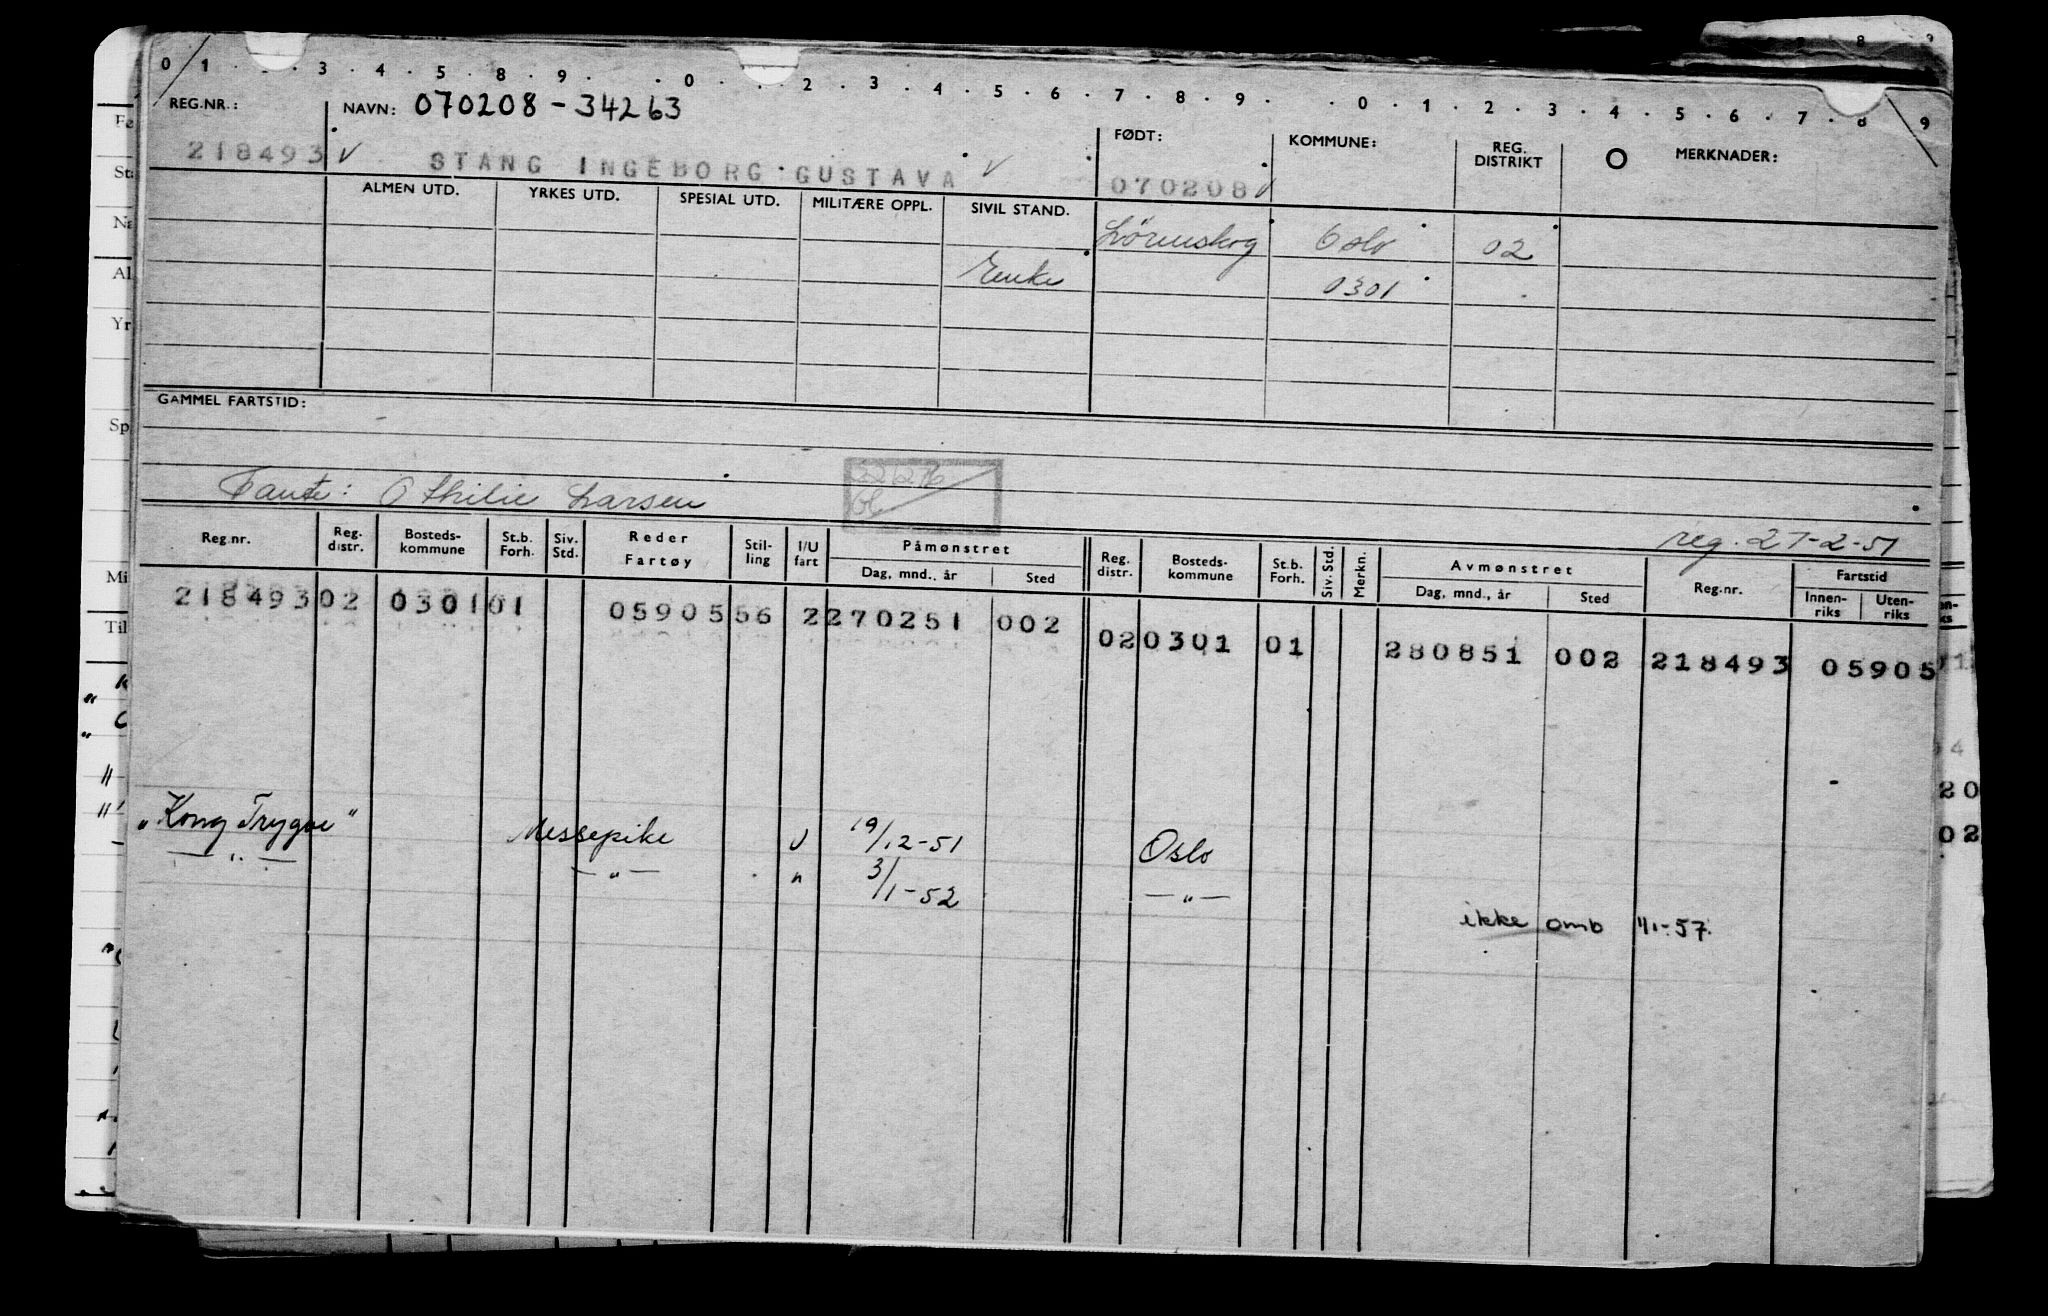 0 1 . . 3 . 4 . 5 . 8 . 9 . . 0 . . 2 . 3 . 4 . 5 . 6 . 7 . 8 . 9 . . 0 . 1 . 2 . 3 . 4 . 5 . 6 . 7 . 8 . 9
REG.NR.: NAVN: 070208-34263 FØDT: KOMMUNE: REG. DISTRIKT MERKNADER:
218493 STANG INGEBORG GUSTAVA 070208
ALMEN UTD. YRKES UTD. SPESIAL UTD. MILITÆRE OPPL. SIVIL STAND.
Lørenskog Oslo 02
Enke 0301
GAMMEL FARTSTID: -
Tante: Othilie Larsen
reg. 27-2-51
Reg.nr. Reg. distr. Bosteds-kommune St.b. Forh. Siv. Std. Reder Fartøy Stil-ling I/U fart Påmønstret Dag, mnd., år Sted Reg. distr. Bosteds-kommune St.b. Forh. Siv. Std. Merkn. Avmønstret Dag, mnd., år Sted Reg.nr. Fartstid Innen-riks Uten-riks
218493 02 0301 01 05905 56 2 270251 002 02 0301 01 280851 002 218493 05905
"Kong Trygve" Messepike U 19/12-51 Oslo
—"— —"— " 3/1-52 —"—
ikke omb 1/1-57.